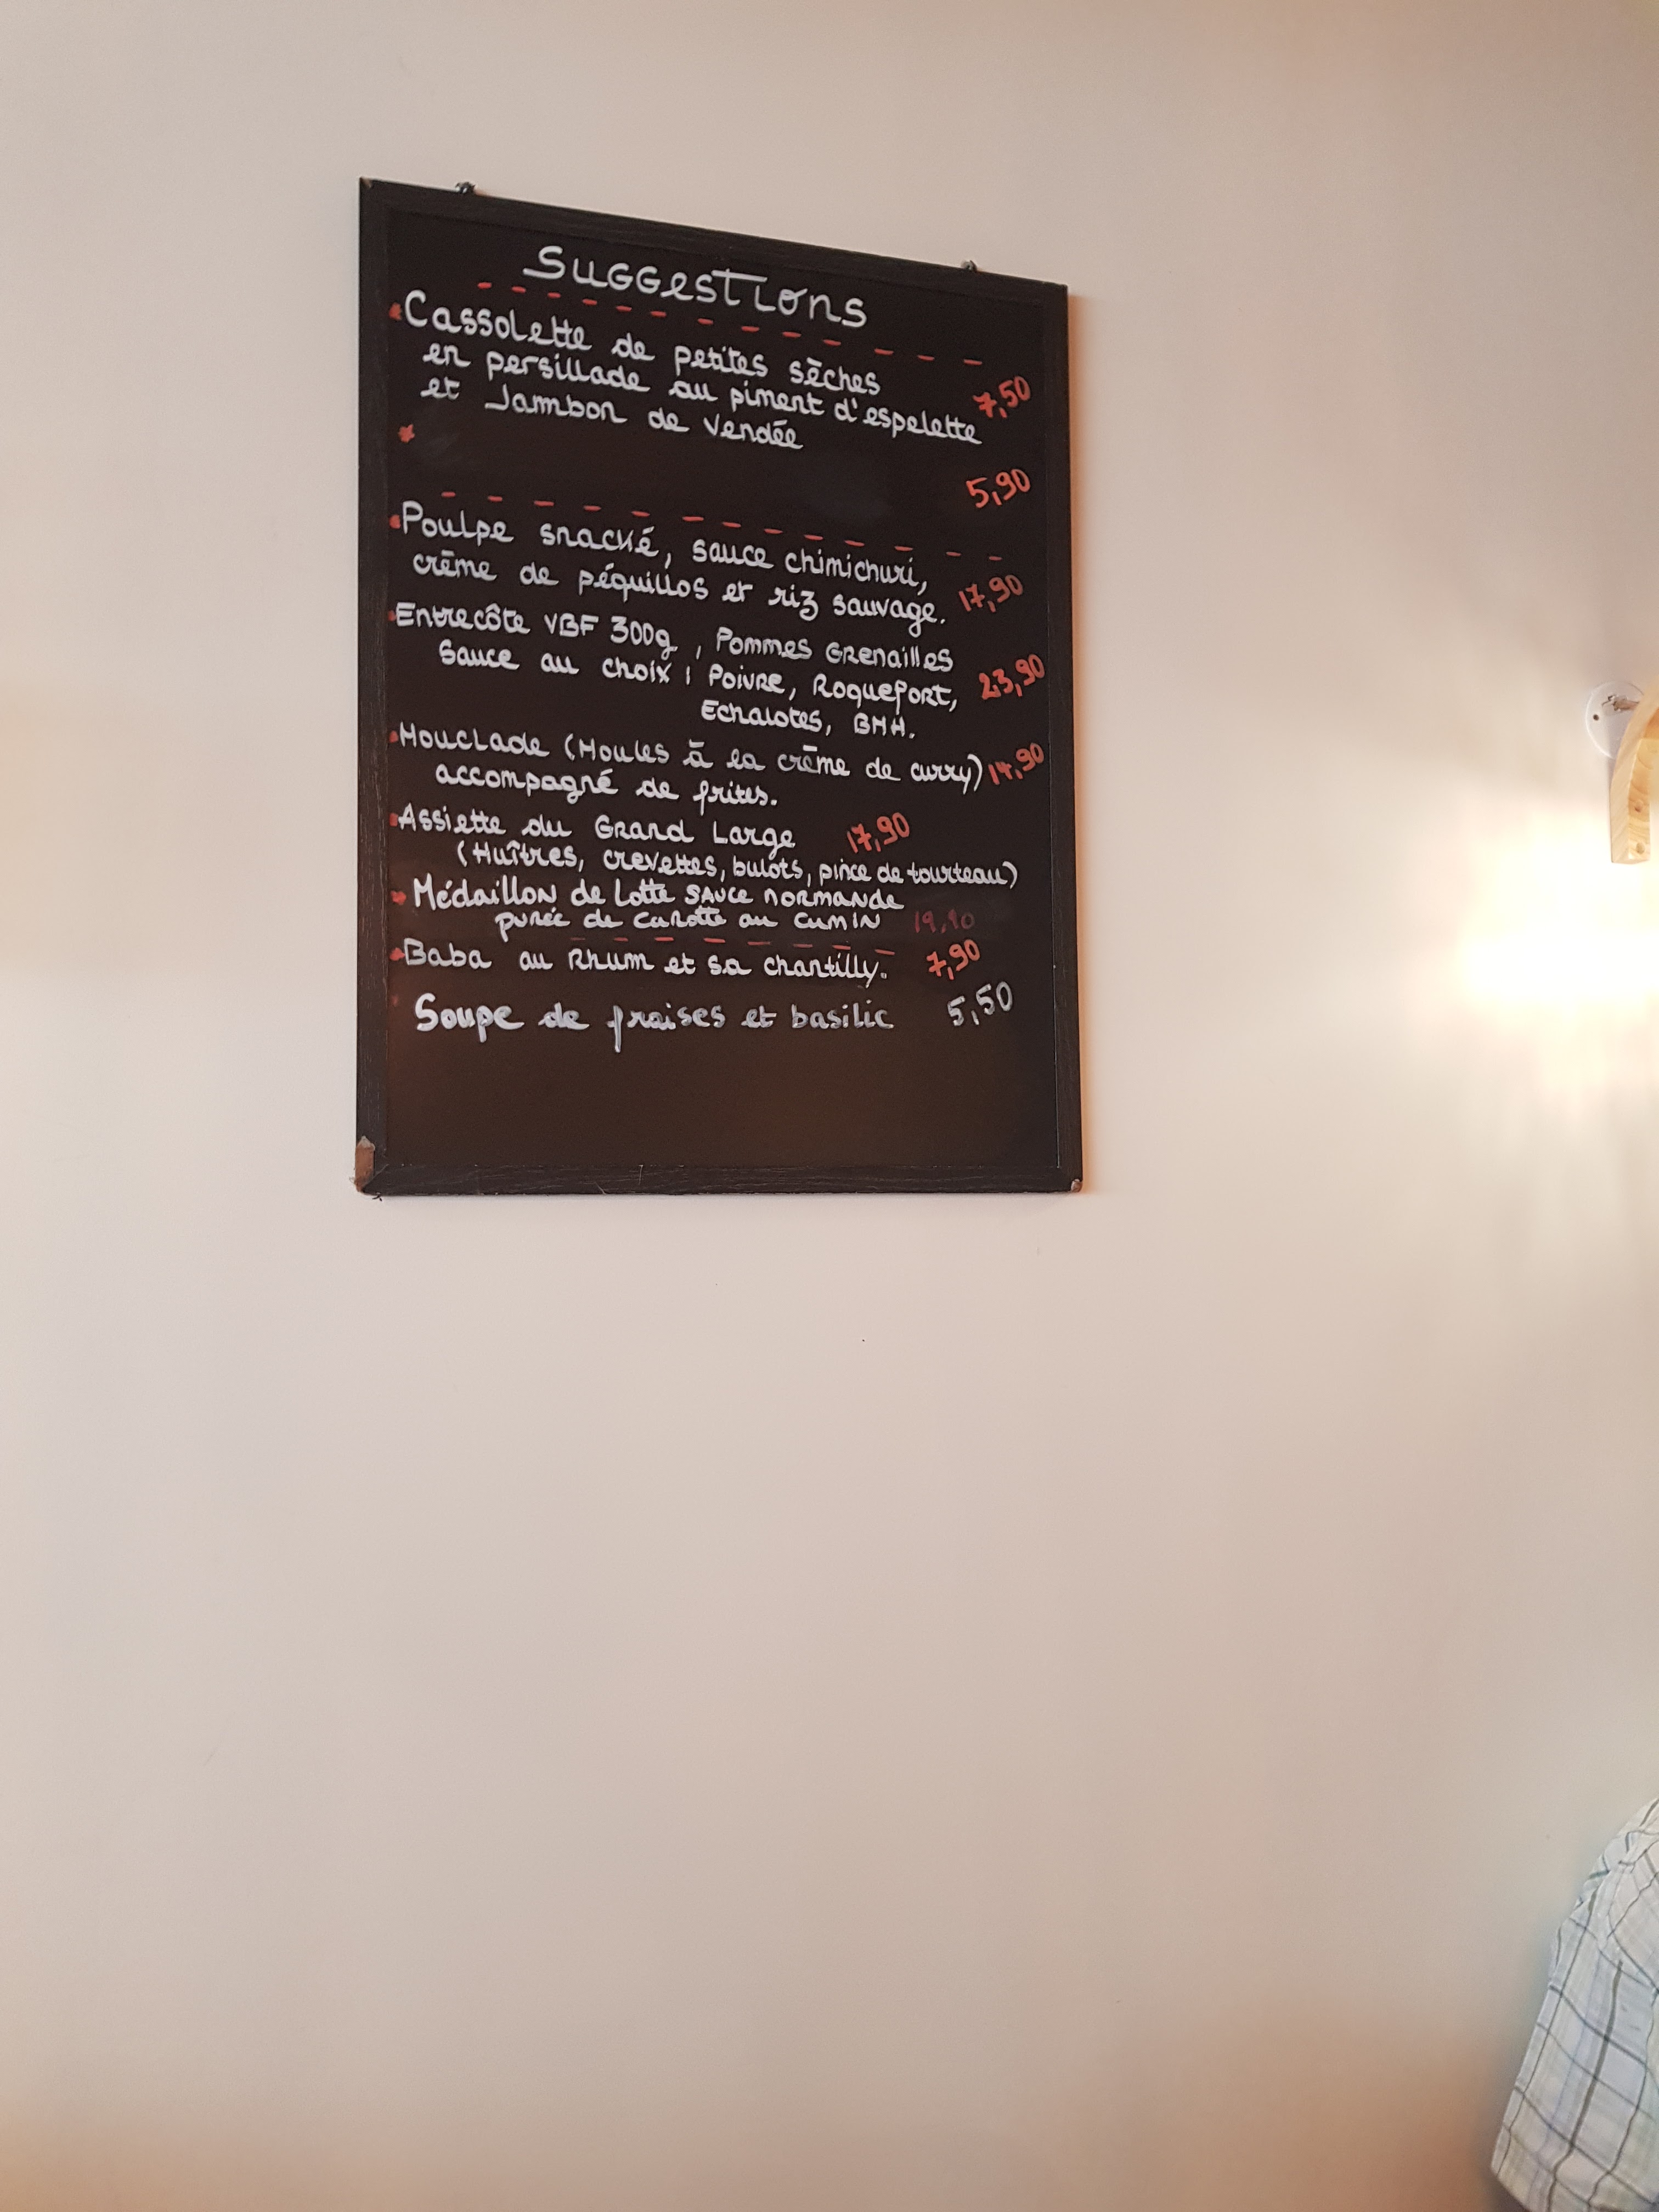 Suggestions
Cassolette de petites sèches
en persillade au piment d'espelette 7,50
et Jambon de Vendée
5,90
Poulpe snacké, sauce chimichuri,
crème de péquillos et riz sauvage. 17,90
Entrecôte VBF 300g, Pommes Grenailles
Sauce au choix : Poivre, Roquefort, 23,90
Echalotes, BMH.
Mouclade (Moules à la crème de curry) 14,90
accompagné de frites.
Assiette du Grand Large 17,90
(Huîtres, crevettes, bulots, pince de tourteau)
Médaillon de Lotte sauce normande
purée de carotte au cumin 19,90
Baba au Rhum et sa chantilly. 7,90
Soupe de fraises et basilic 5,50